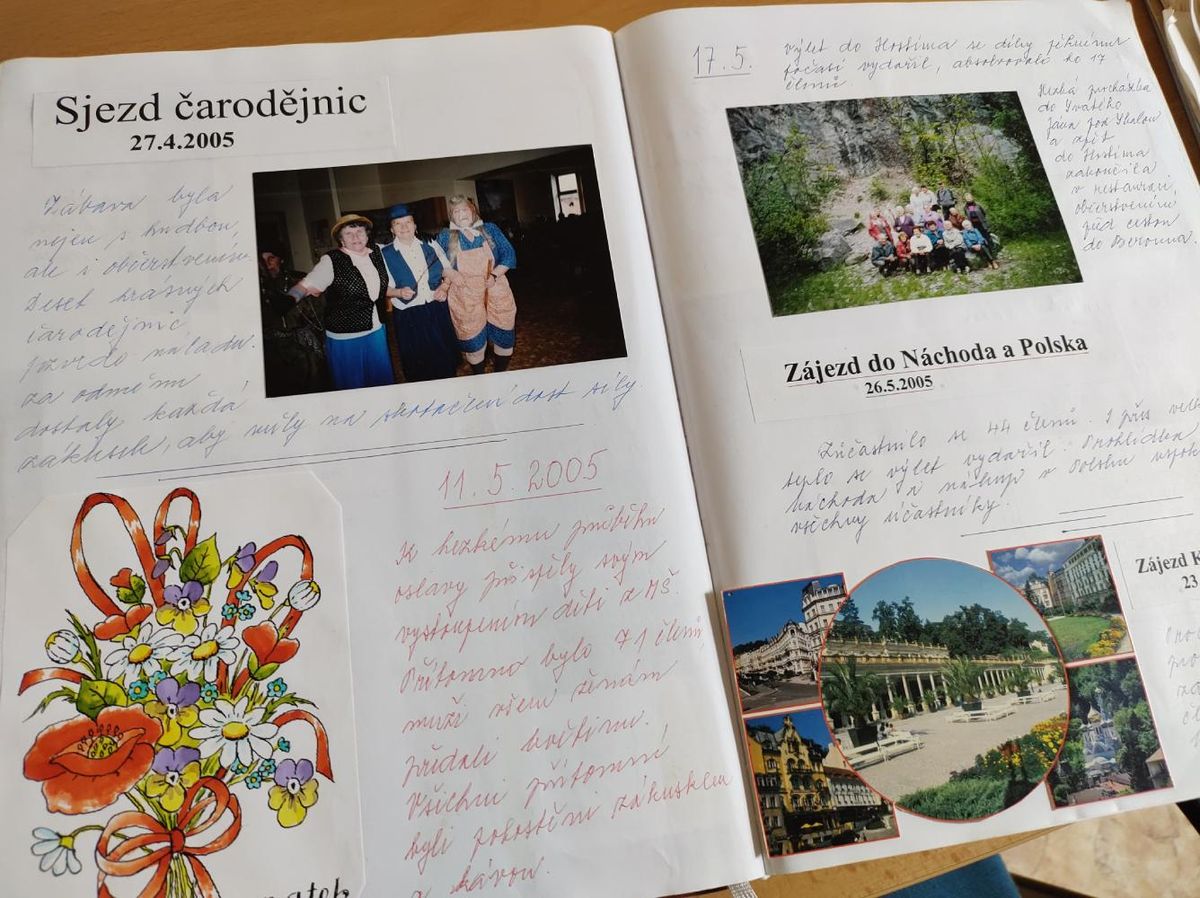 Sjezd čarodějnic
27.4.2005
Zábava byla
nejen s hudbou,
ale i občerstvením.
Deset krásných
čarodějnic
náladu.
za odměnu
dostaly každá
zákusek, aby měly na skotačení dost síly.
11. 5. 2005
K hezkému průběhu
oslavy přispěly svým
vystoupením děti z MŠ.
Přítomno bylo 71 členů,
muži všem ženám
předali květinu.
Všichni přítomní
byli pohoštěni zákuskem
a kávou.
17. 5.
výlet do Hostíma se díky pěknému
počasí vydařil, absolvovalo ho 17
členů
Hezká procházka
do Svatého
Jána pod Skalou
a zpět
do Hostíma
zakončila
v restauraci,
občerstvením
před cestou
do Berouna
Zájezd do Náchoda a Polska
26.5.2005
Zúčastnilo se 44 členů. I přes velké
teplo se výlet vydařil. Prohlídka
Náchoda a nákup v Polsku
všechny účastníky.
Zájezd K
23